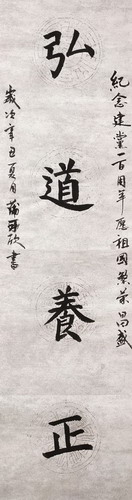 紀念建黨一百周年慶祖國繁荣昌盛
弘道養正
歲次辛丑夏月蒲研欣書